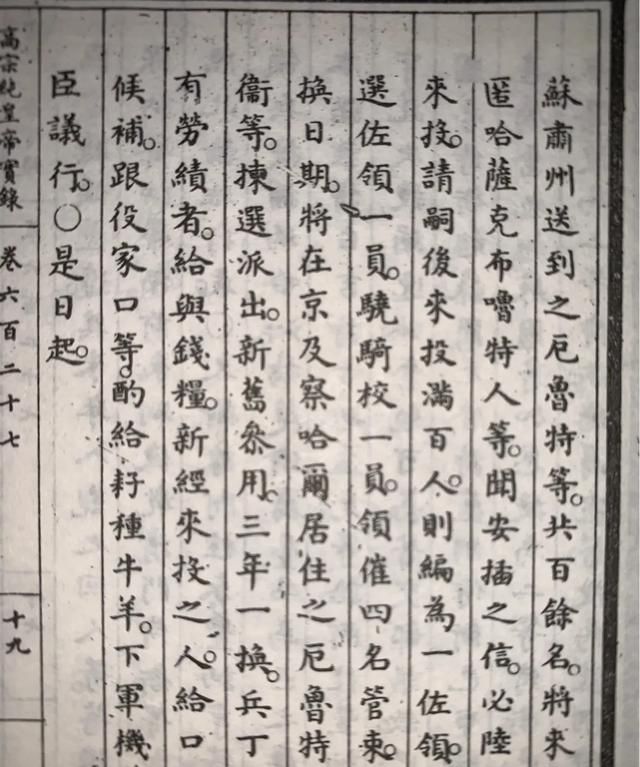 蘇肅州送到之厄魯特等。共百餘名。將來
匿哈薩克布嚕特人等。聞安插之信。必陸
來投。請嗣後來投滿百人。則編為一佐領。
選佐領一員。驍騎校一員。領催四名管束。
換日期。將在京及察哈爾居住之厄魯特
衞等。揀選派出。新舊叅用。三年一換。兵丁
有勞績者。給與錢糧。新經來投之人。給口
候補。跟役家口等。酌給耔種牛羊。下軍機
臣議行。○是日起。
高宗純皇帝實錄 卷六百二十七 十九